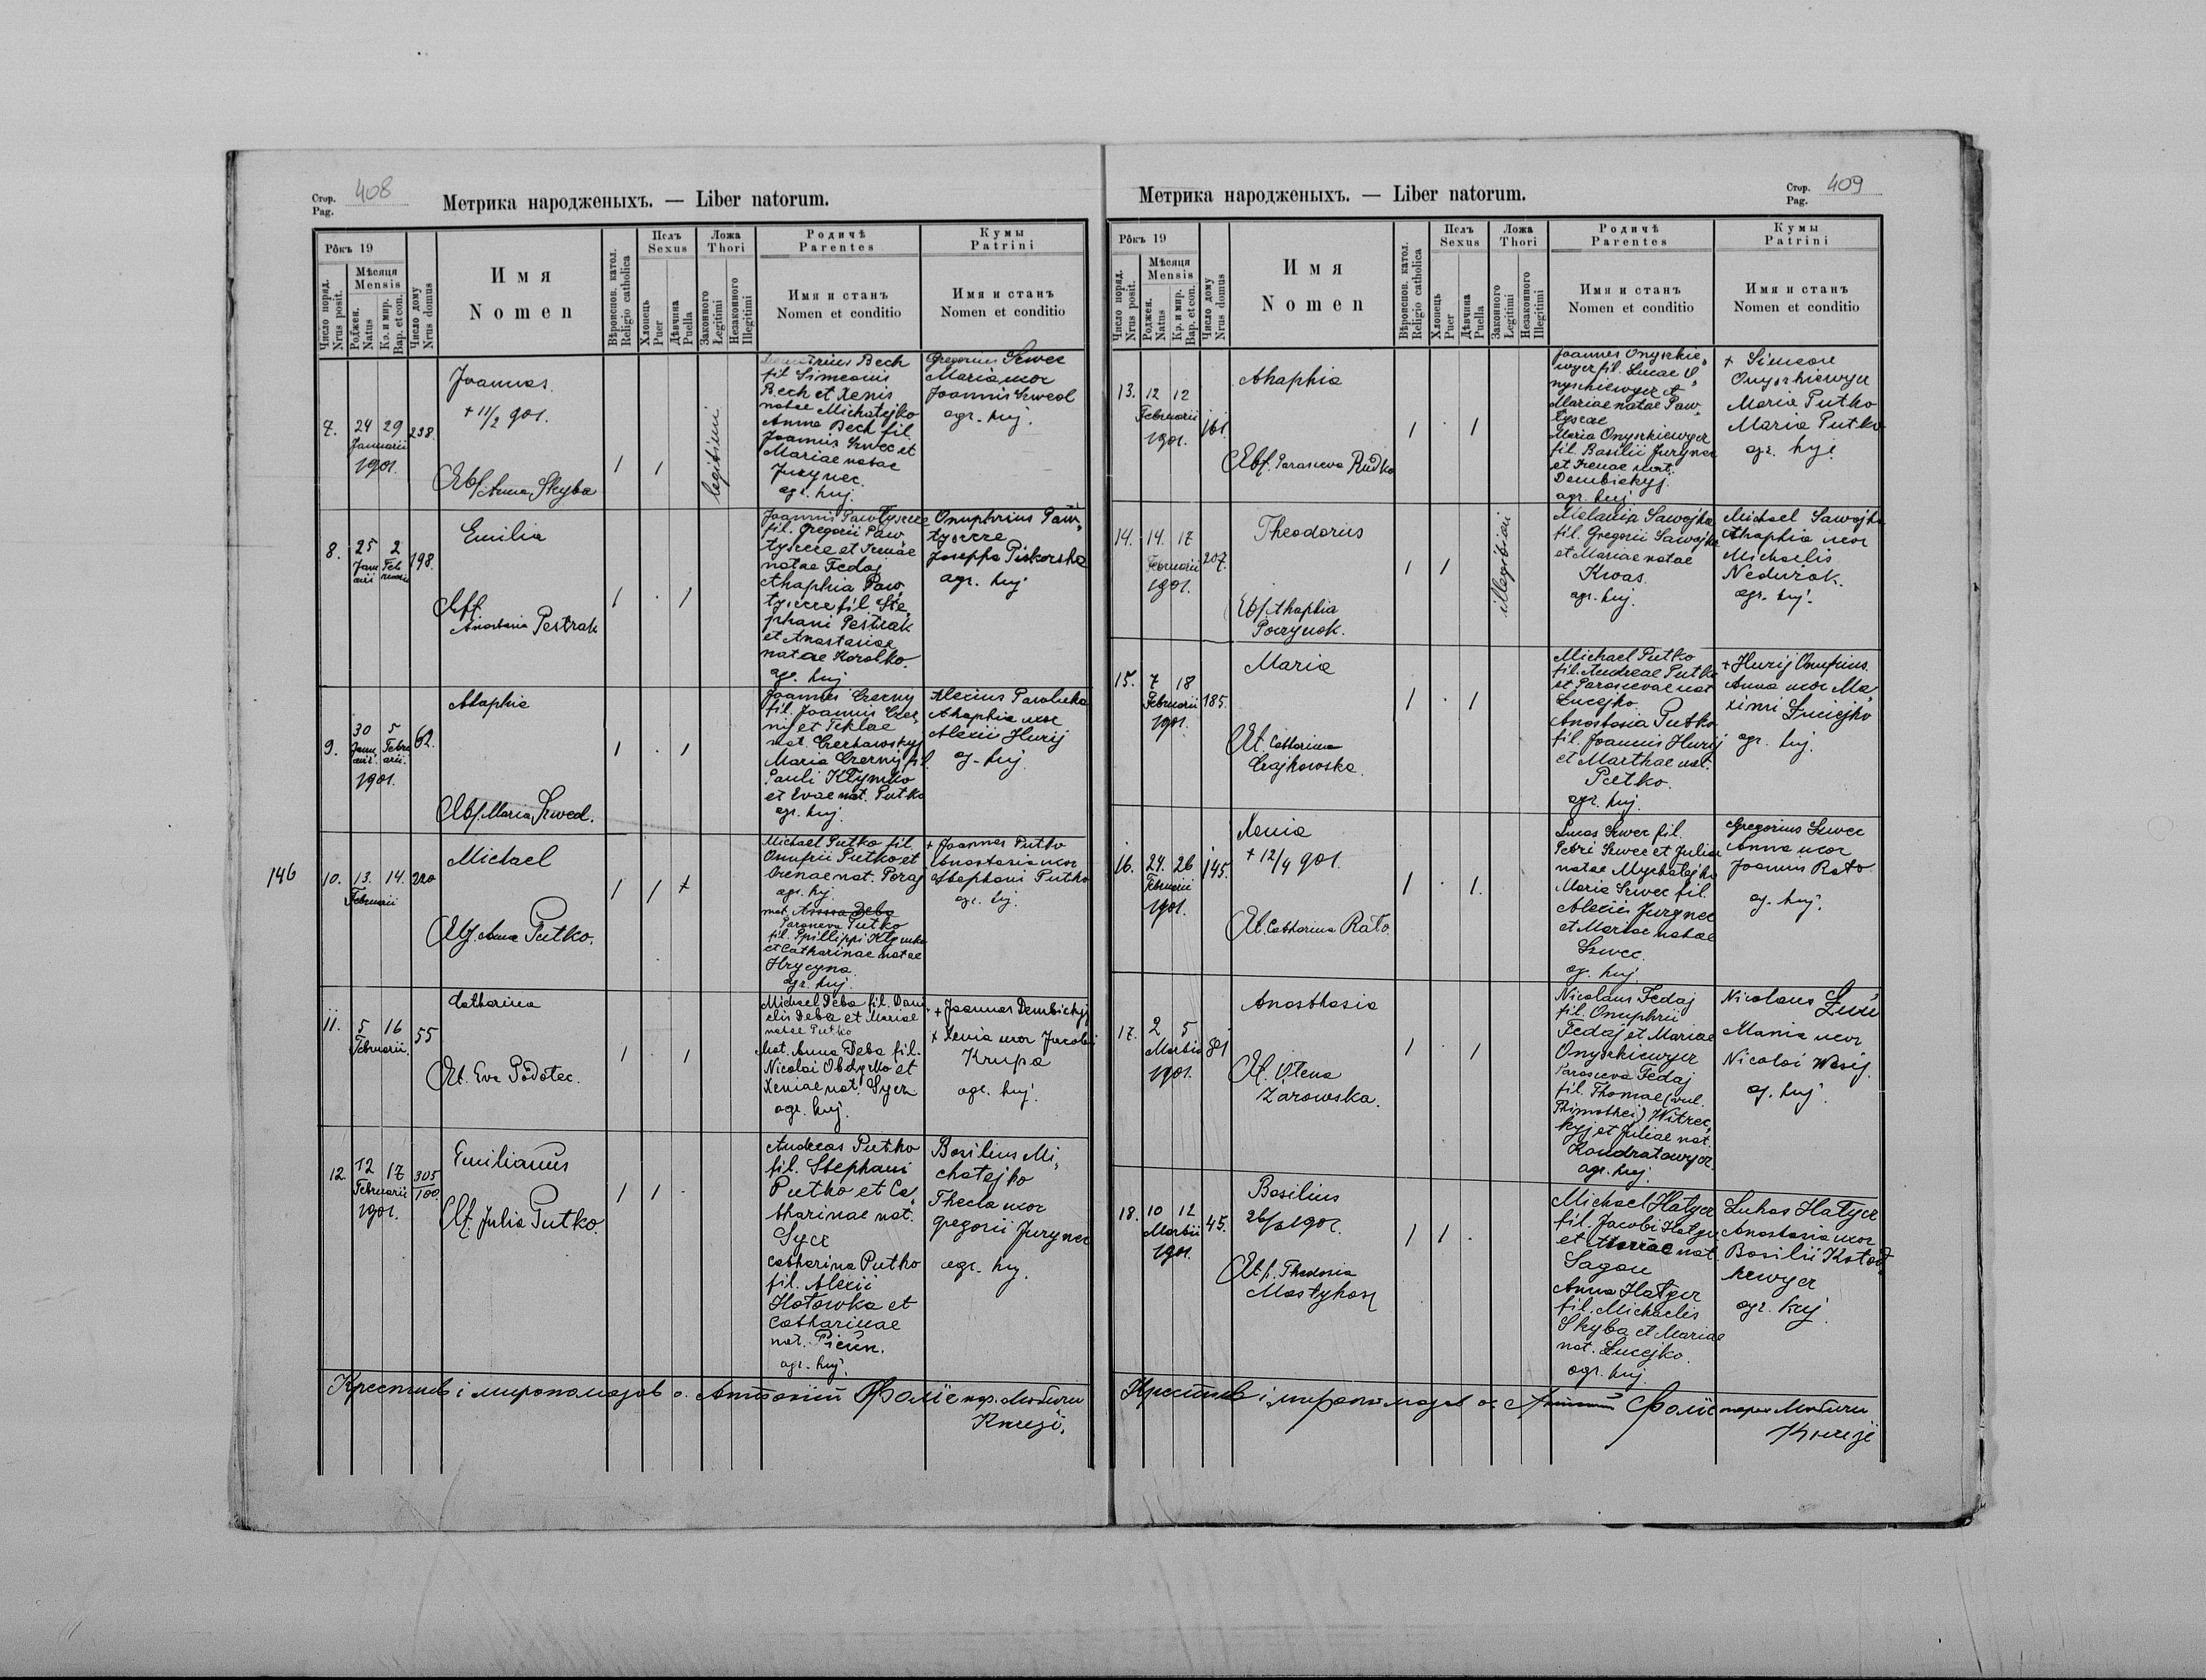 Стор.
Pag.
408
Метрика народженыхъ. — Liber natorum.
Рôкъ 19
Число поряд.
Nrus posit.
Мѣсяця
Mensis
Роджен.
Natus
Кр. и мир.
Bap. et con.
Число дому
Nrus domus
Имя
Nomen
Вѣроиспов. катол.
Religio catholica
Полъ
Sexus
Хлопець
Puer
Дѣвчина
Puella
Ложа
Thori
Законного
Legitimi
Незаконного
Illegitimi
Родичѣ
Parentes
Имя и станъ
Nomen et conditio
Кумы
Patrini
Имя и станъ
Nomen et conditio
7.
24 29
Januarii
1901.
238.
Joannes
+ 11/2 901.
Obst. Anna Skyba
1 1
legitimi
Demetrius Bech
fil Simeonis
Bech et Xenis
natae Michatejko
Anna Bech fil.
Joannis Szwec et
Mariae natae
Jurynec.
agr. huj.
Gregorius Szwec
Maria uxor
Joannis Szwed
agr. huj.
8.
25 2
Janu Feb
arii ruarii
198.
Emilia
Anastasia Pestrak
1 . 1
Joannis Pawtyszcze
fil. Gregorii Paw
tyszcze et Irenae
natae Fedaj
Ahaphia Paw,
tyszcze fil. Ste,
phani Pestrak
et Anastasiae
natae Korotko.
agr. huj
Onuphrius Paw,
tyszcze
Josepha Piskorska
agr. huj
9.
30 5
Janu Febru
arii. arii.
1901.
62.
Ahaphia
Obst. Maria Szwed.
1 . 1
Joannes Czerny
fil. Joannis Czer,
nyj et Teklae
nat. Czerhawskyj
Maria Czerny fil.
Pauli Klymko
et Evae nat. Putko
agr. huj.
Alexius Pawluka
Ahaphia uxor
Alexii Hurij
ag. huj.
146
10.
13. 14.
Februarii
220
Michael
Obst. Anna Putko.
1 1 +
Michael Putko fil.
Onufrii Putko et
Irenae nat. Poraj
agr. hj.
mat. Anna Deba
Parasceva Putko
fil. Phillippi Klymko
et Catharinae natae
Hrycyna.
agr. huj.
+ Joannes Putko
Anastasia uxor
Stephani Putko
agr. hj.
11.
5 16
Februarii.
55
Catharina
Obst. Eva Podotec.
1 . 1
Michael Deba fil. Dani
elis Deba et Mariae
natae Putko
Mat. Anna Deba fil.
Nicolai Obdyrko et
Xeniae nat. Sycz
agr. huj.
+ Joannes Dembickyj
x Xenia uxor Jacobi
Krupa
agr. huj.
12.
12 17
Februarii
1901.
305/100.
Emilianus
Obst. Julia Putko.
1 1 .
Andreas Putko
fil. Stephani
Putko et Ca,
tharinae nat.
Sycz
Catharina Putko
fil. Alexii
Hotowka et
Catharinae
nat. Picun.
agr. huj.
Basilius Mi,
chatejko
Thecla uxor
Gregorii Jurynec
agr. huj.
Крестивъ і миропомазавъ о. Антоній Фолис пар. Любичи
Княжі.
Метрика народженыхъ. — Liber natorum.
Стор.
Pag.
409
Рôкъ 19
Число поряд.
Nrus posit.
Мѣсяця
Mensis
Роджен.
Natus
Кр. и мир.
Bap. et con.
Число дому
Nrus domus
Имя
Nomen
Вѣроиспов. катол.
Religio catholica
Полъ
Sexus
Хлопець
Puer
Дѣвчина
Puella
Ложа
Thori
Законного
Legitimi
Незаконного
Illegitimi
Родичѣ
Parentes
Имя и станъ
Nomen et conditio
Кумы
Patrini
Имя и станъ
Nomen et conditio
13.
12 12
Februarii
1901.
161.
Ahaphia
Obst. Parasceva Rudko
1 . 1
Joannes Onyszkie,
wycz fil. Lucae O,
nyszkiewycz et
Mariae natae Paw,
tyszcze
Maria Onyszkiewycz
fil. Basilii Jurynec
et Irenae nat.
Dembickyj.
agr. huj
+ Simeon
Onyszkiewycz
Maria Putko
Maria Putko
agr. huj.
14.
14. 17
Februarii
1901.
207.
Theodorus
Obst. Ahaphia
Poczynok.
1 1
illegitimi
Melania Sawojka
fil. Gregorii Sawojka
et Mariae natae
Kwas.
agr. huj.
Michael Sawojka
Ahaphia uxor
Michaelis
Neduzok.
agr. huj.
15.
7 18
Februarii
1901.
185.
Maria
Obst. Catharina
Czajkowska.
1 . 1
Michael Putko
fil. Andreae Putko
et Parascevae nat
Łucejko.
Anastasia Putko
fil. Joannis Hurij
et Marthae nat.
Putko.
agr. huj.
+ Hurij Onufrius
Anna uxor Ma,
ximi Łuciejko
agr. huj.
16.
24. 26
Februarii
1901.
145.
Xenia
+ 12/4 901.
Obst. Catharina Rato.
1 . 1.
Lucas Szwec fil.
Petri Szwec et Juliae
natae Mychatejko
Maria Szwec fil.
Alexii Jurynec
et Mariae natae
Szwec.
ag. huj.
Gregorius Szwec
Anna uxor
Joannis Rato
ag. huj.
17.
2 5
Martii
1901.
81
Anasthasia
Obst. Olena
Żarowska.
1 . 1
Nicolaus Fedaj
fil. Onuphrii
Fedaj et Mariae
Onyszkiewycz
Parasceva Fedaj
fil. Thomae (vul.
Thimothei) Witrec,
kyj et Juliae nat.
Kondratowycz.
agr. huj.
Nicolaus
Maria uxor
Nicolai Wasij.
ag. huj.
18.
10 12
Martii
1901.
45.
Basilius
Obst. Theodosia
1 1 .
Michael Hatycz
fil. Jacobi Hatycz
et Mariae nat.
Sagan
Anna Hatycz
fil. Michaelis
Skyba et Mariae
nat. Łucejko.
agr. huj.
Lukas Hatycz
Anastasia uxor
Basilii Kotod,
kewycz
agr. huj.
Крестивъ і миропомазавъ о. Антоній Фолис парох Любичи
Княжі